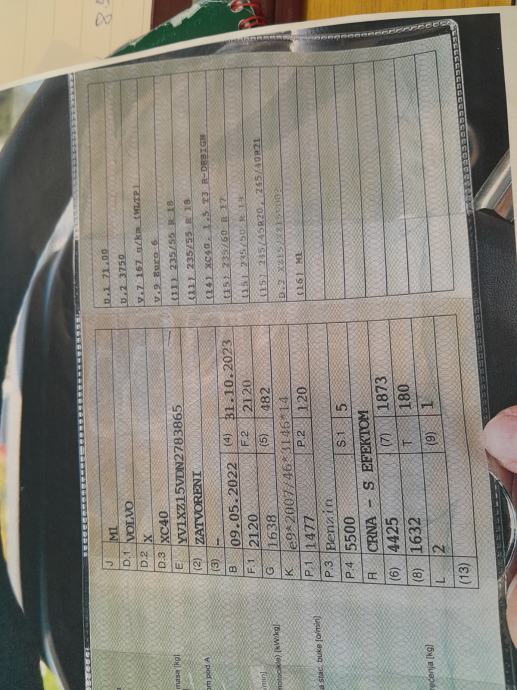 J M1
D.1 VOLVO
D.2 X
D.3 XC40
E YV1XZ15VDN2783865
(2) ZATVORENI
(3) -
B 09.05.2022 (4) 31.10.2023
F.1 2120 F.2 2120
G 1638 (5) 482
K e9*2007/46*3146*14
P.1 1477 P.2 120
P.3 Benzin
P.4 5500 S.1 5
R CRNA - S EFEKTOM
(6) 4425 (7) 1873
(8) 1632 T 180
L 2 (9) 1
(13)
D.1 71.00
D.2 3750
V.7 167 g/km (WLTP)
V.9 Euro 6
(11) 235/55 R 18
(11) 235/55 R 18
(14) XC40, 1.5 T3 R-DESIGN
(15) 235/60 R 17
(15) 235/50 R 19
(15) 245/45R20, 245/40R21
(16) M1
masa [kg]
m pod A
min]
a stac. buke [o/min]